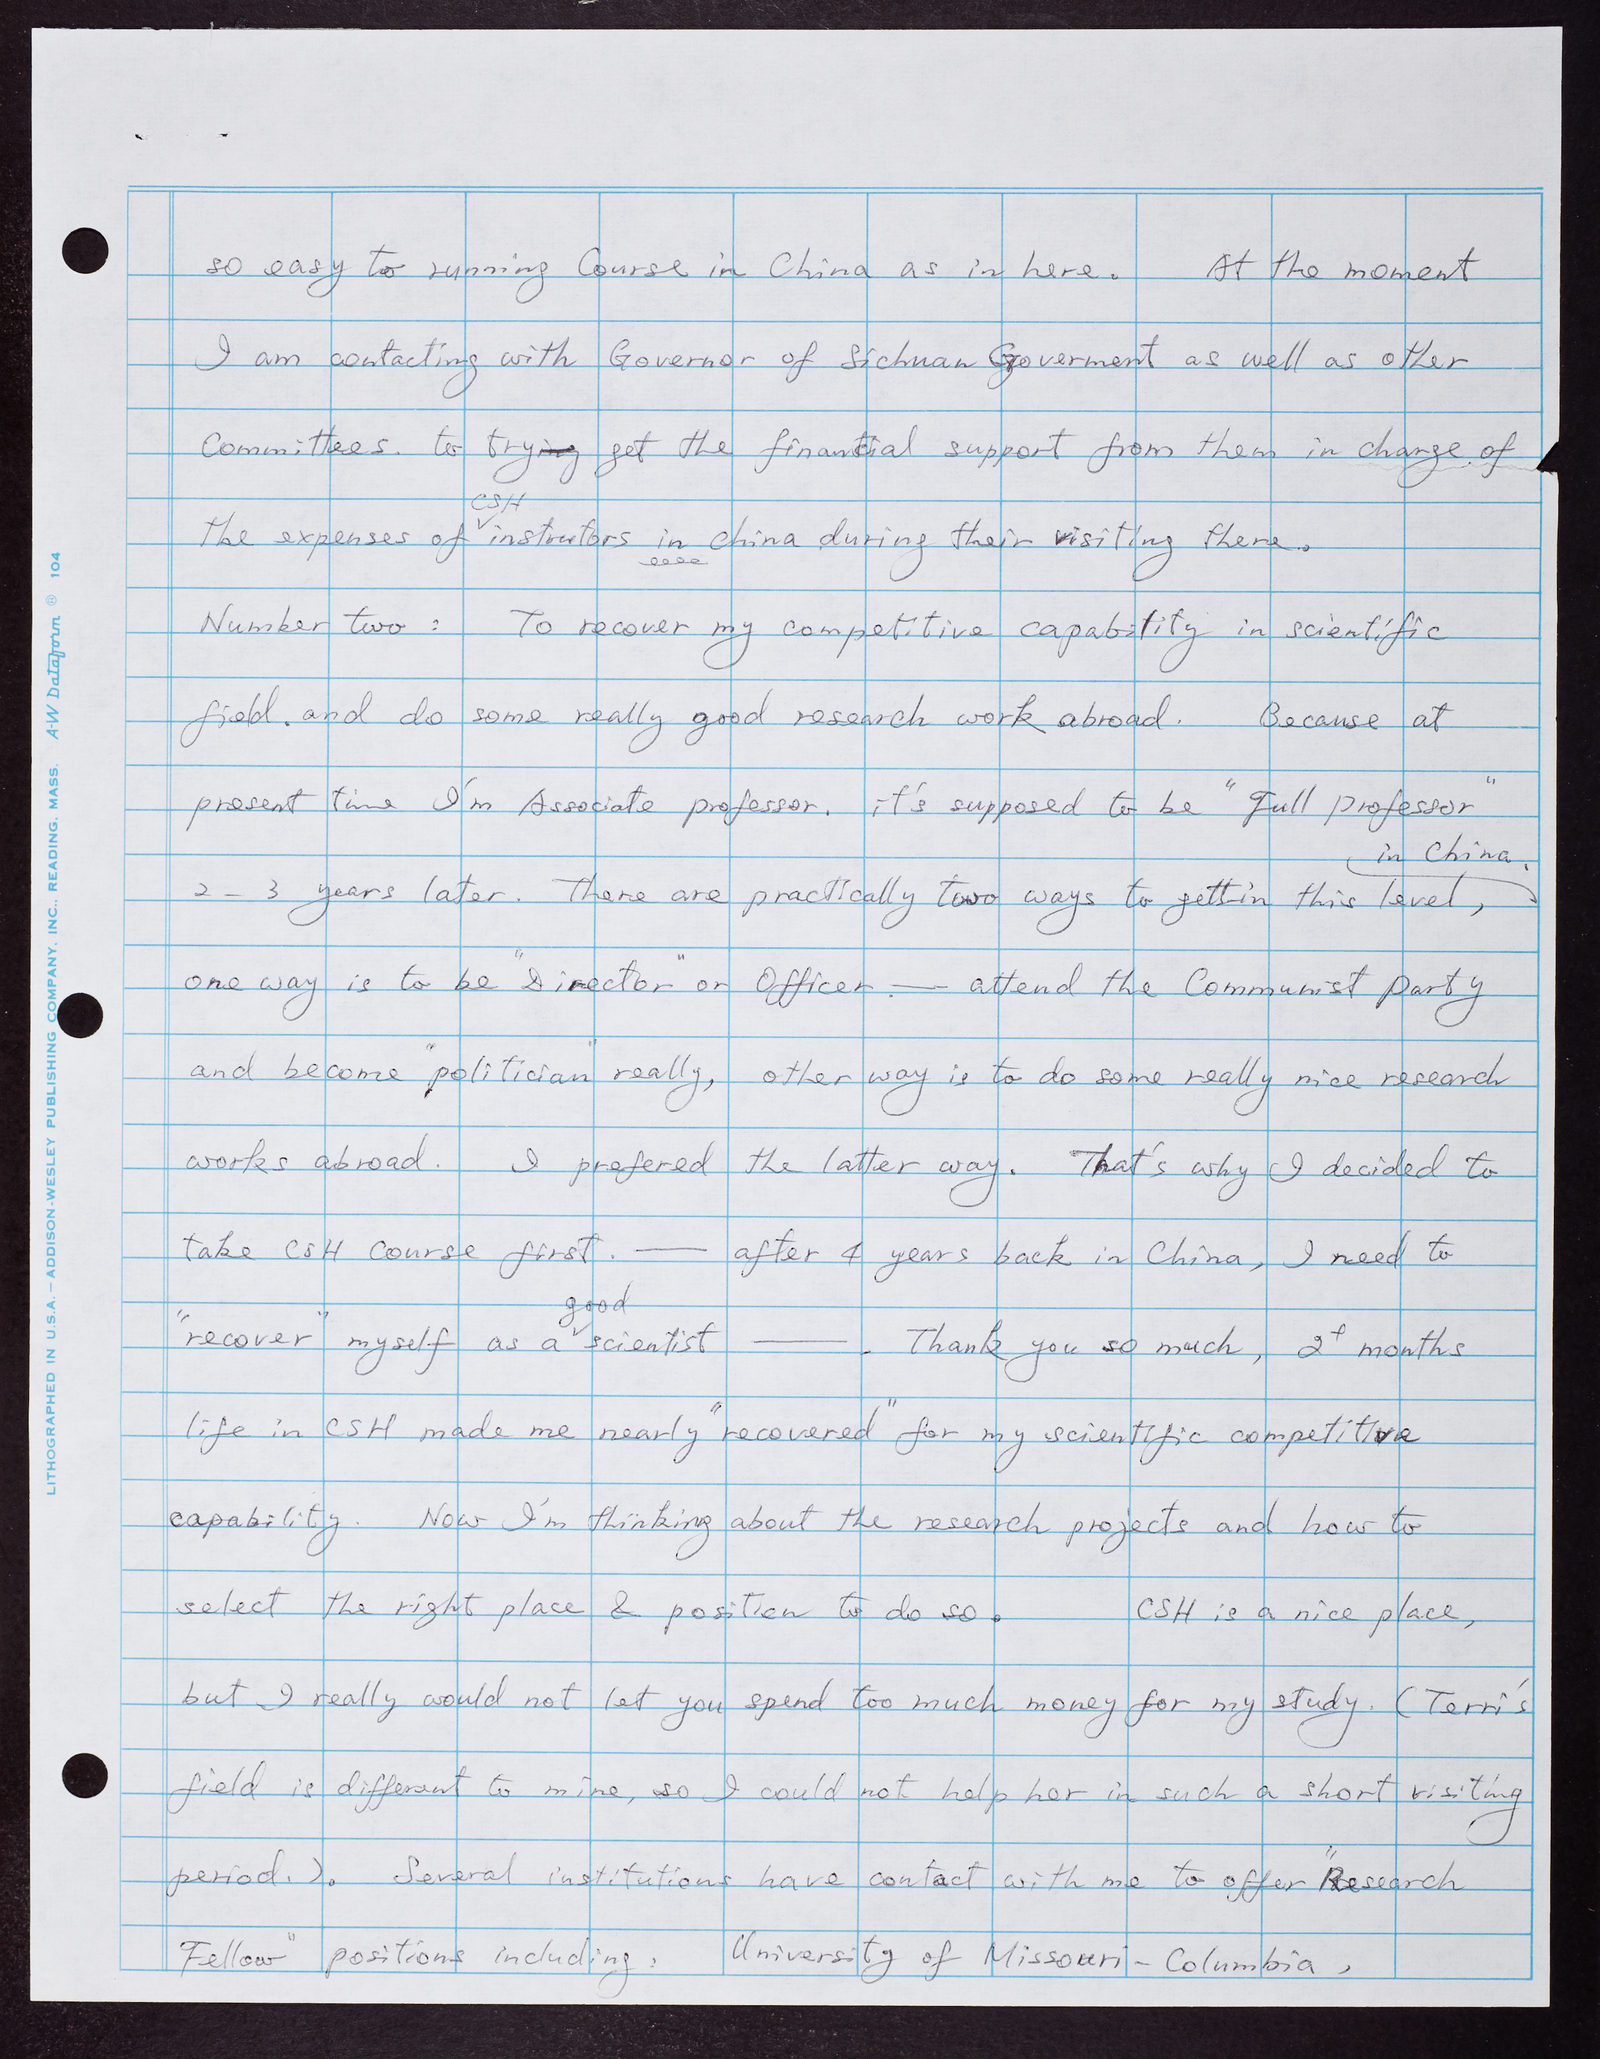 so easy to running Course in China as in here. At the moment
I am contacting with Governor of Sichuan Goverment as well as other
Committees. to trying get the financial support from them in charge of
CSH
the expenses of instructors in China during their visiting there.
Number two: To recover my competitive capability in scientific
field. and do some really good research work abroad. Because at
present time I'm Associate professor. it's supposed to be "Full professor"
in China.
2-3 years later. There are practically two ways to gett in this level,
one way is to be "Director" or Officer. — attend the Communist party
and become "politician" really, other way is to do some really nice research
works abroad. I prefered the latter way. That's why I decided to
take CSH Course first. — after 4 years back in China, I need to
good
"recover" myself as a scientist —. Thank you so much, 2+ months
life in CSH made me nearly "recovered" for my scientific competitive
capability. Now I'm thinking about the research projects and how to
select the right place & position to do so. CSH is a nice place,
but I really would not let you spend too much money for my study. (Terri's
field is different to mine, so I could not help her in such a short visiting
period.). Several institutions have contact with me to offer "Research
Fellow" positions including: University of Missouri-Columbia,
LITHOGRAPHED IN U.S.A. — ADDISON-WESLEY PUBLISHING COMPANY, INC., READING, MASS. A-W Dataform ® 104